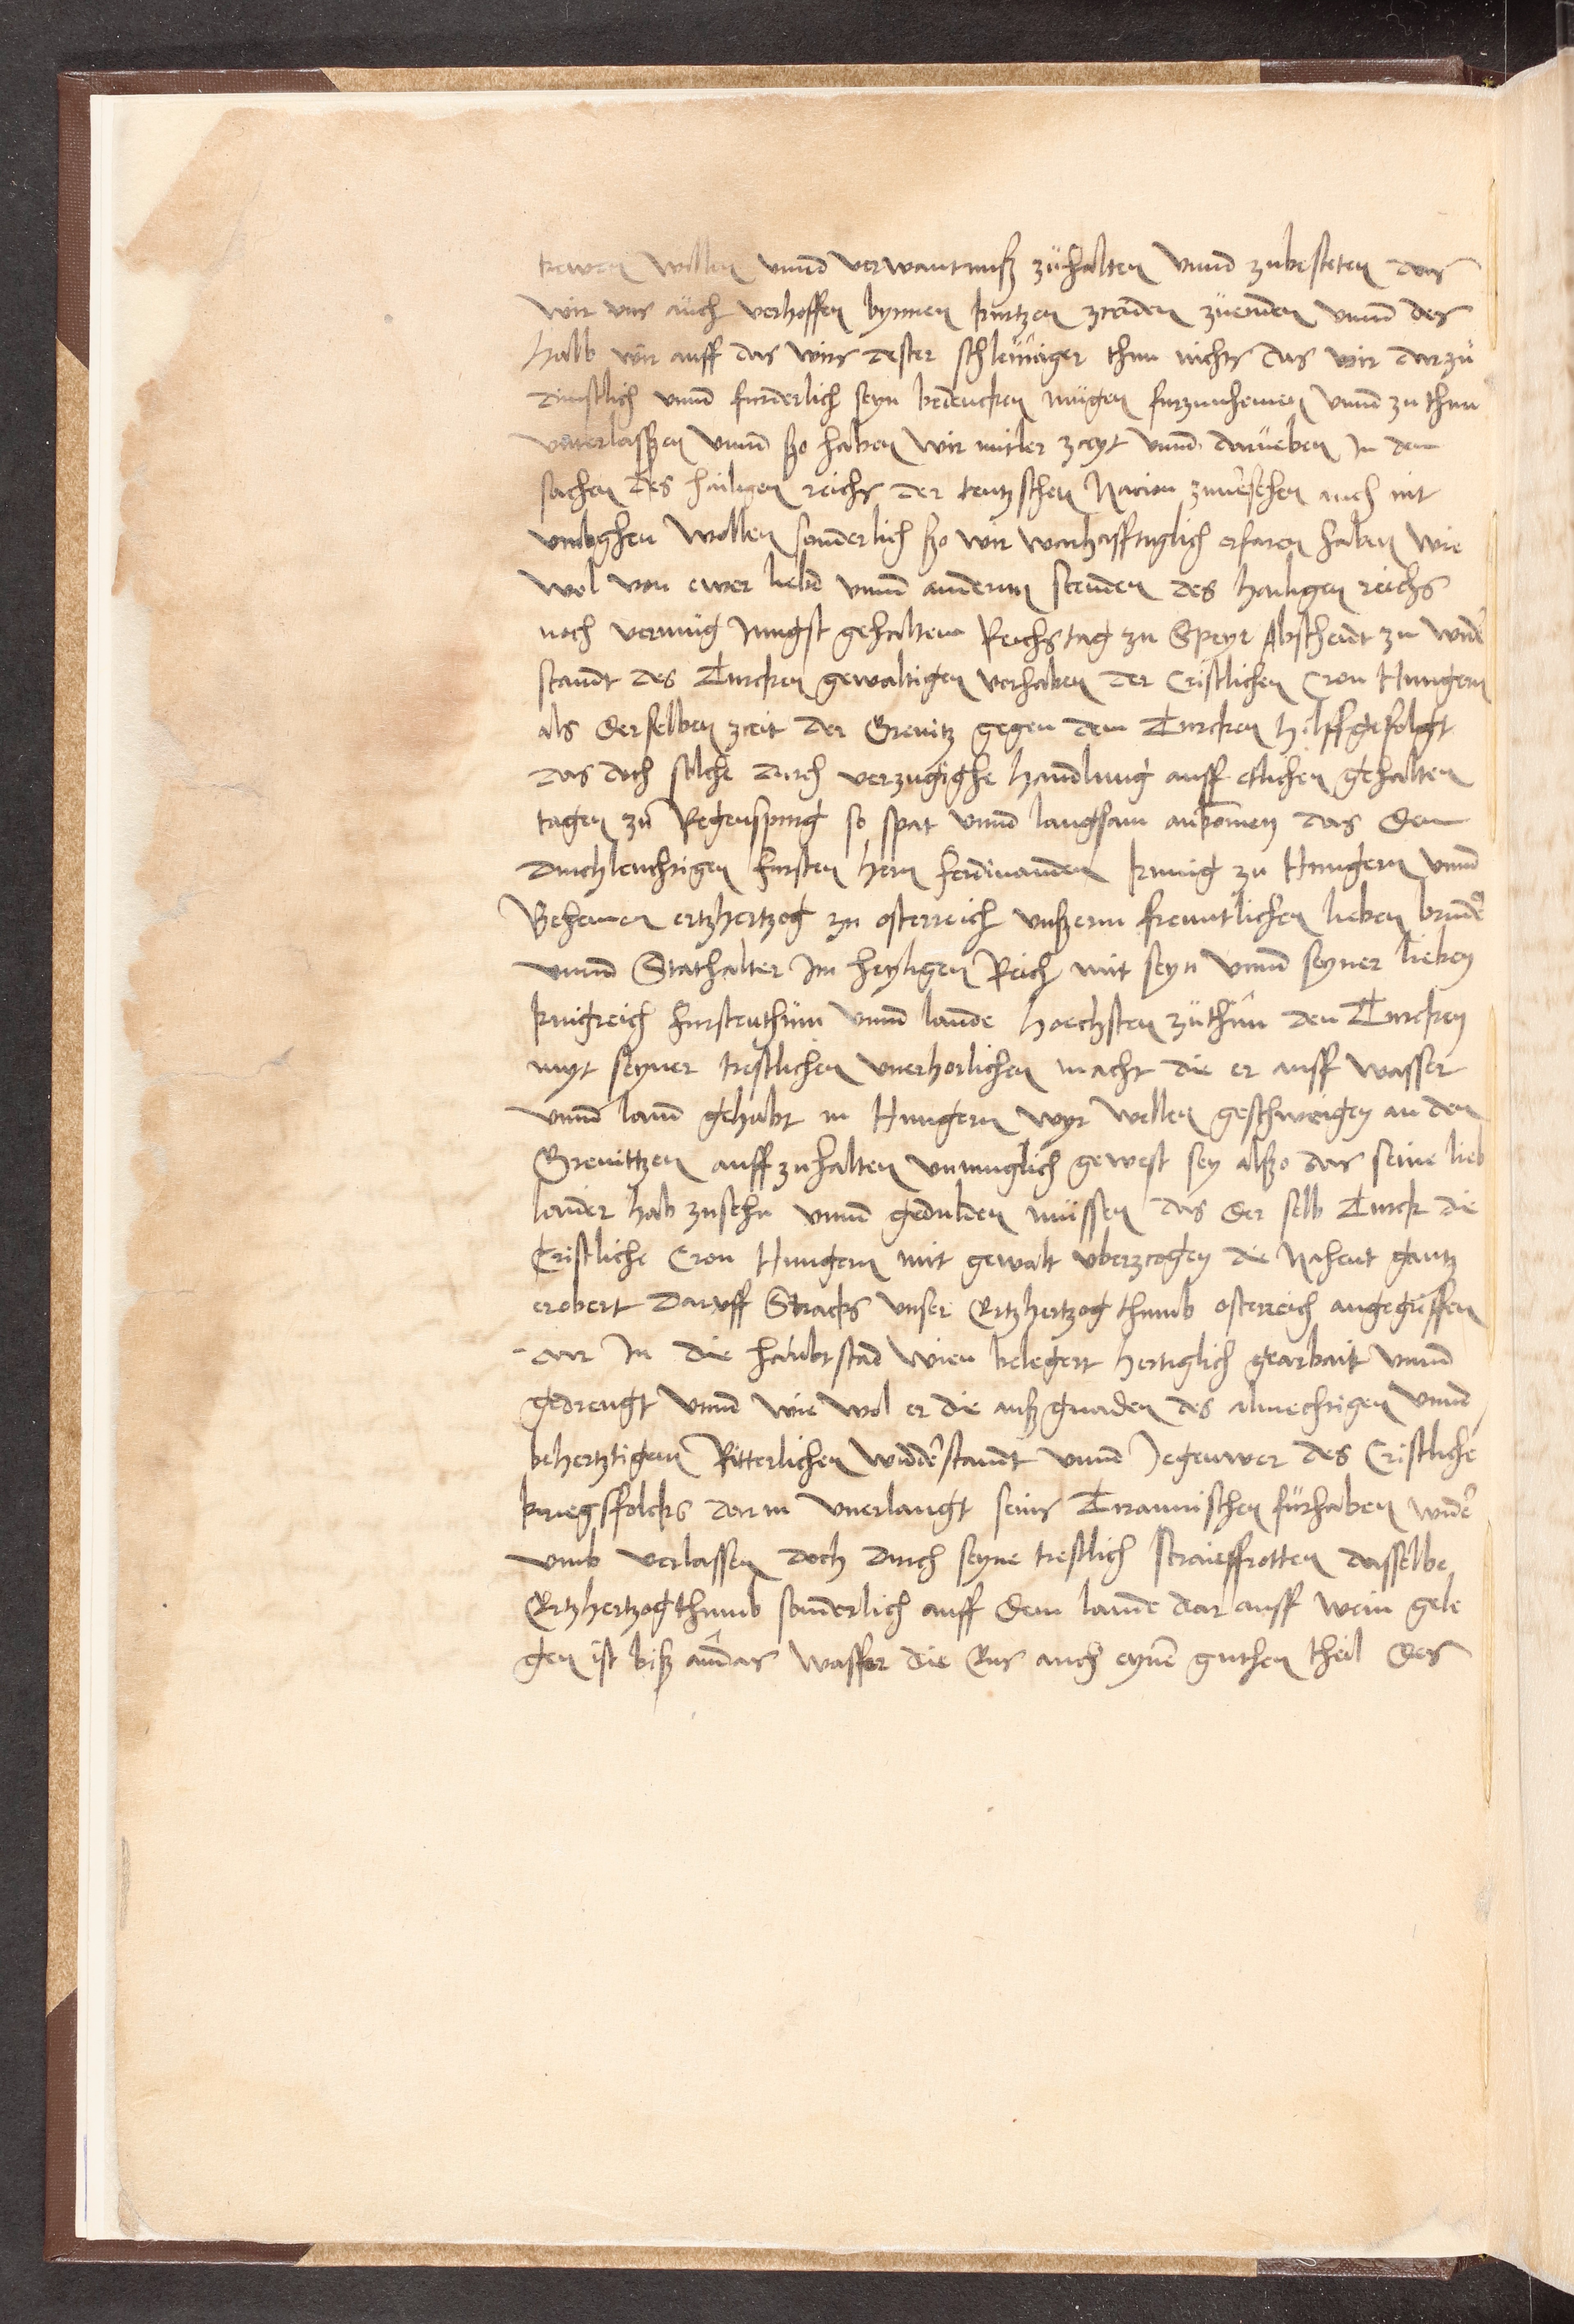 trewen willen vnnd verwantnuß zuhalten vnnd zubesteten das
wir vns auch verhoffen bynnen kurtzen zceiden zuenden vnnd des
halb wir auff das wirs dester schleuniger thun nichts das wir darzu
dinstlich vnnd furderlich seyn bedencken mugen furzunhemen vnnd zu thun
vnterlasszen vnnd ßo haben wir mitler zceyt vnnd darneben in den
sachen des hailigen reichs der teutzschen Nacion zuuersehen auch nit
vmbghen wollen sonderlich ßo wir warhafftiglich erfaren haben wie
wol von ewer liebd vnnd andernn stenden des hailigen reichs
noch vermug Jungst gehalten Reichstag zu Speyr Abscheidt zu wider
standt des Turcken gewaltigen vorhaben der Cristlichen Cron Hungern
als derselben zceit der Grenitz gegen dem Turcken hilff gefolgt
das doch solche durch verzugighe handlung auff etlichen gehalten
tagen zu Regenspurg so spat vnnd langsam ankomen das dem
durchleuchtigen fursten hern ferdinanden kunig zu Hungern vnnd
Behemen ertzhertzog zu osterreich vnßerm freuntlichen lieben bruder
vnnd Stathalter Im heyligen Reich mit seyn vnnd seyner lieben
kunigreich furstenthum vnnd lande hoechsten zuthun den Turcken
myt seyner trestlichen vnerhorlichen macht die er auff wasser
vnnd land gehabt in Hungern wyr wellen geschweigen an den
Grenittzen auff zuhalten vnmuglich gewest sey alßo das seine lieb
laider hab zusehn vnnd gedulden mussen das der selb Turck die
Cristliche Cron Hungern mit gewalt vberzcogen die Nahent gantz
erobert daruff Stracks vnser Ertzhertzogthumb osterreich angegriffen
dar In die haubtstad wien belegert hertiglich gearbait vnnd
gedrengt vnnd wie wol er die auß gnaden des almechtigen vnnd
behertztigem Ritterlichen widderstandt vnnd Jegenwer des Cristliche
kriegsfolcks darin vnerlangt seins Tirannischen furhaben wider
vmb verlassen doch durch seyne trestlich straieffrotten dasselbe
Ertzhertzogthumb sonderlich auff dem lande dar auff wein gele
gen ist biß an das wasser die Ens auch eynen guthen theil des